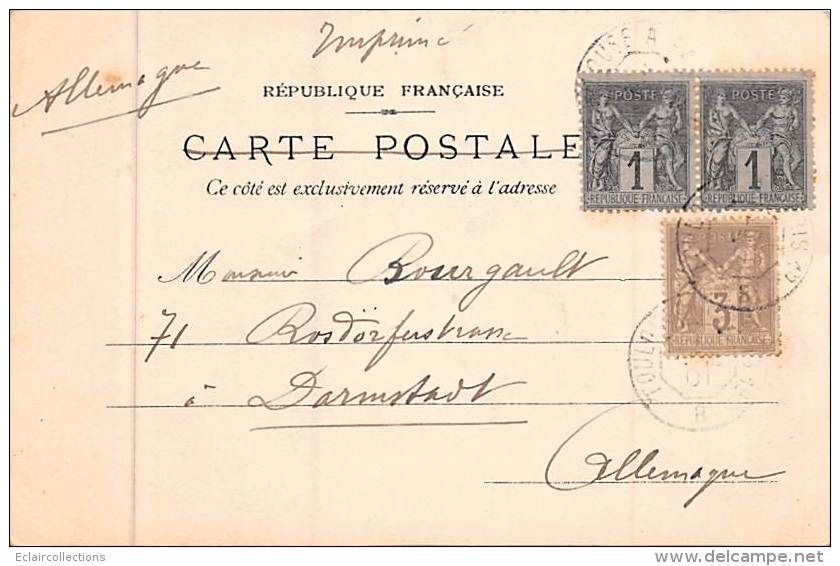 Imprimé
Allemagne
RÉPUBLIQUE FRANÇAISE
CARTE POSTALE
Ce côté est exclusivement réservé à l'adresse
POSTE
1
RÉPUBLIQUE FRANÇAISE
POSTE
1
RÉPUBLIQUE FRANÇAISE
3
RÉPUBLIQUE FRANÇAISE
Monsieur Bourgault
71 Rosdörferstrasse
à Darmstadt
Allemagne
Eclaircollections
delcampe.net